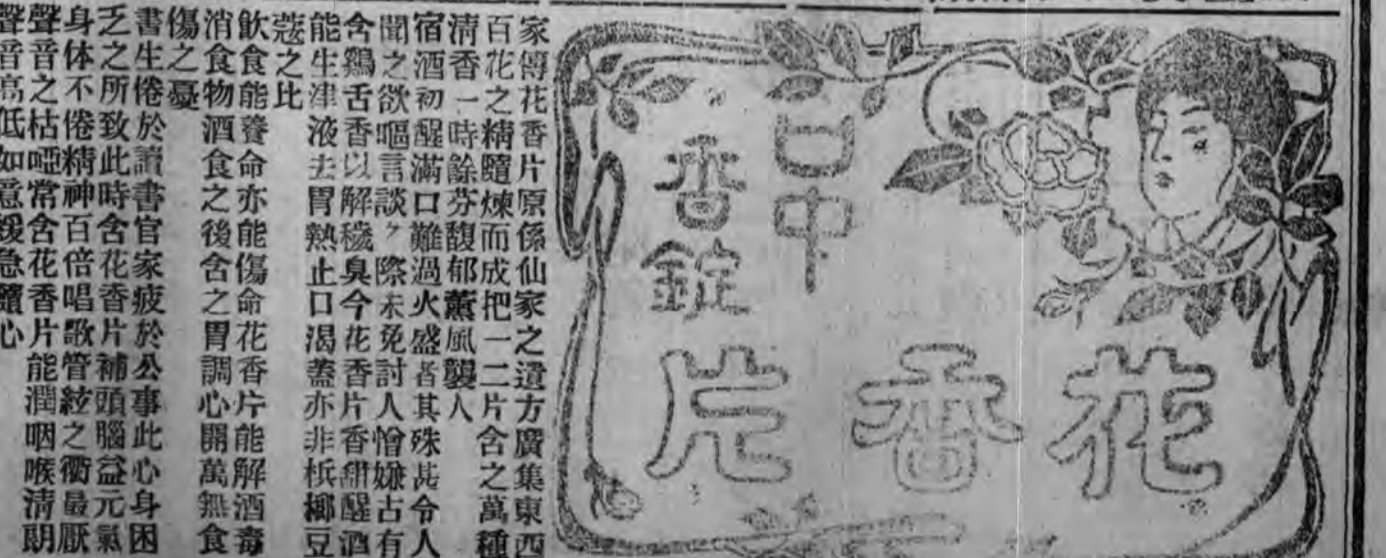 花香片
口中
香錠
家傳花香片原係仙家之遺方廣集東西
百花之精髓煉而成把一二片含之萬種
清香一時餘芬馥郁薰風襲人
宿酒初醒滿口難過火盛者其殊甚令人
聞之欲嘔言談ヶ際未免討人憎嫌古有
含鷄舌香以解穢臭今花香片香甜醒酒
能生津液去胃熱止口渴蓋亦非梹榔豆
蔻之比
飲食能養命亦能傷命花香片能解酒毒
消食物酒食之後含之胃調心開萬無食
傷之憂
書生倦於讀書官家疲於公事此心身困
乏之所致此時含花香片補頭腦益元氣
身体不倦精神百倍唱歌管絃之衢最厭
聲音之枯啞常含花香片能潤咽喉清朗
聲音高低如意緩急隨心